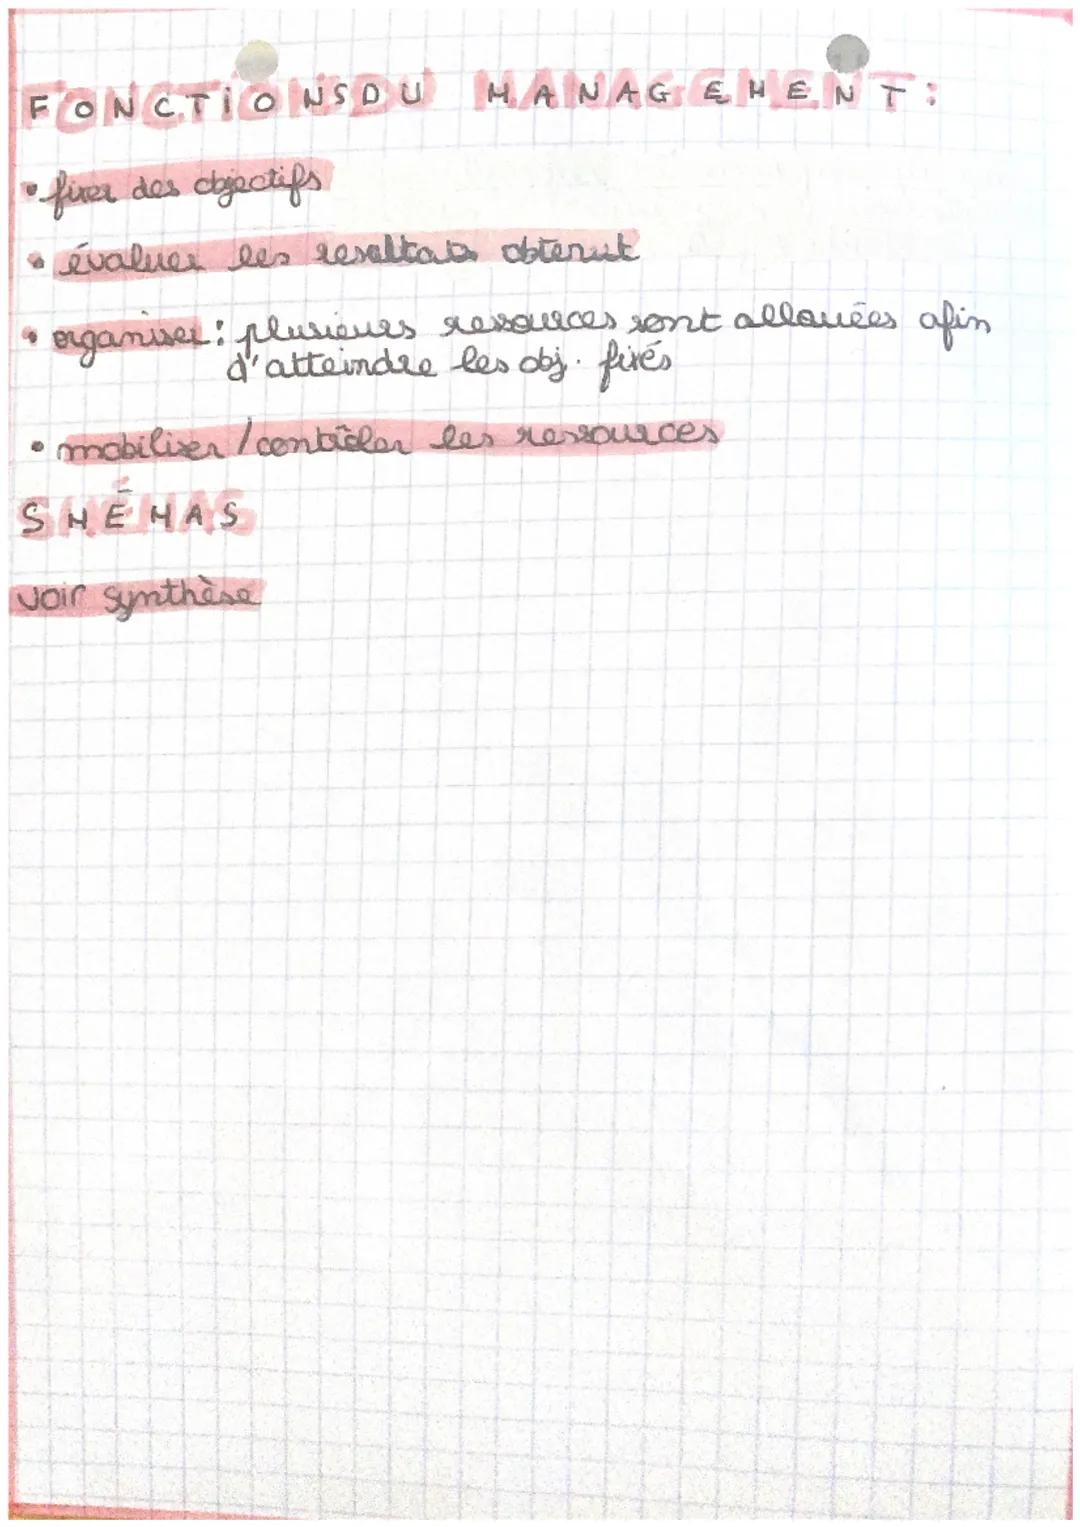 FONCTIONS DU MANAGEMENT :
• fixer des objectifs
• évaluer les resultats obtenut
• organiser : plusieurs resources sont allouées afin
d'atteindre les obj. fixés
• mobiliser / contrôler les ressources
SHÉMAS
voir synthèse